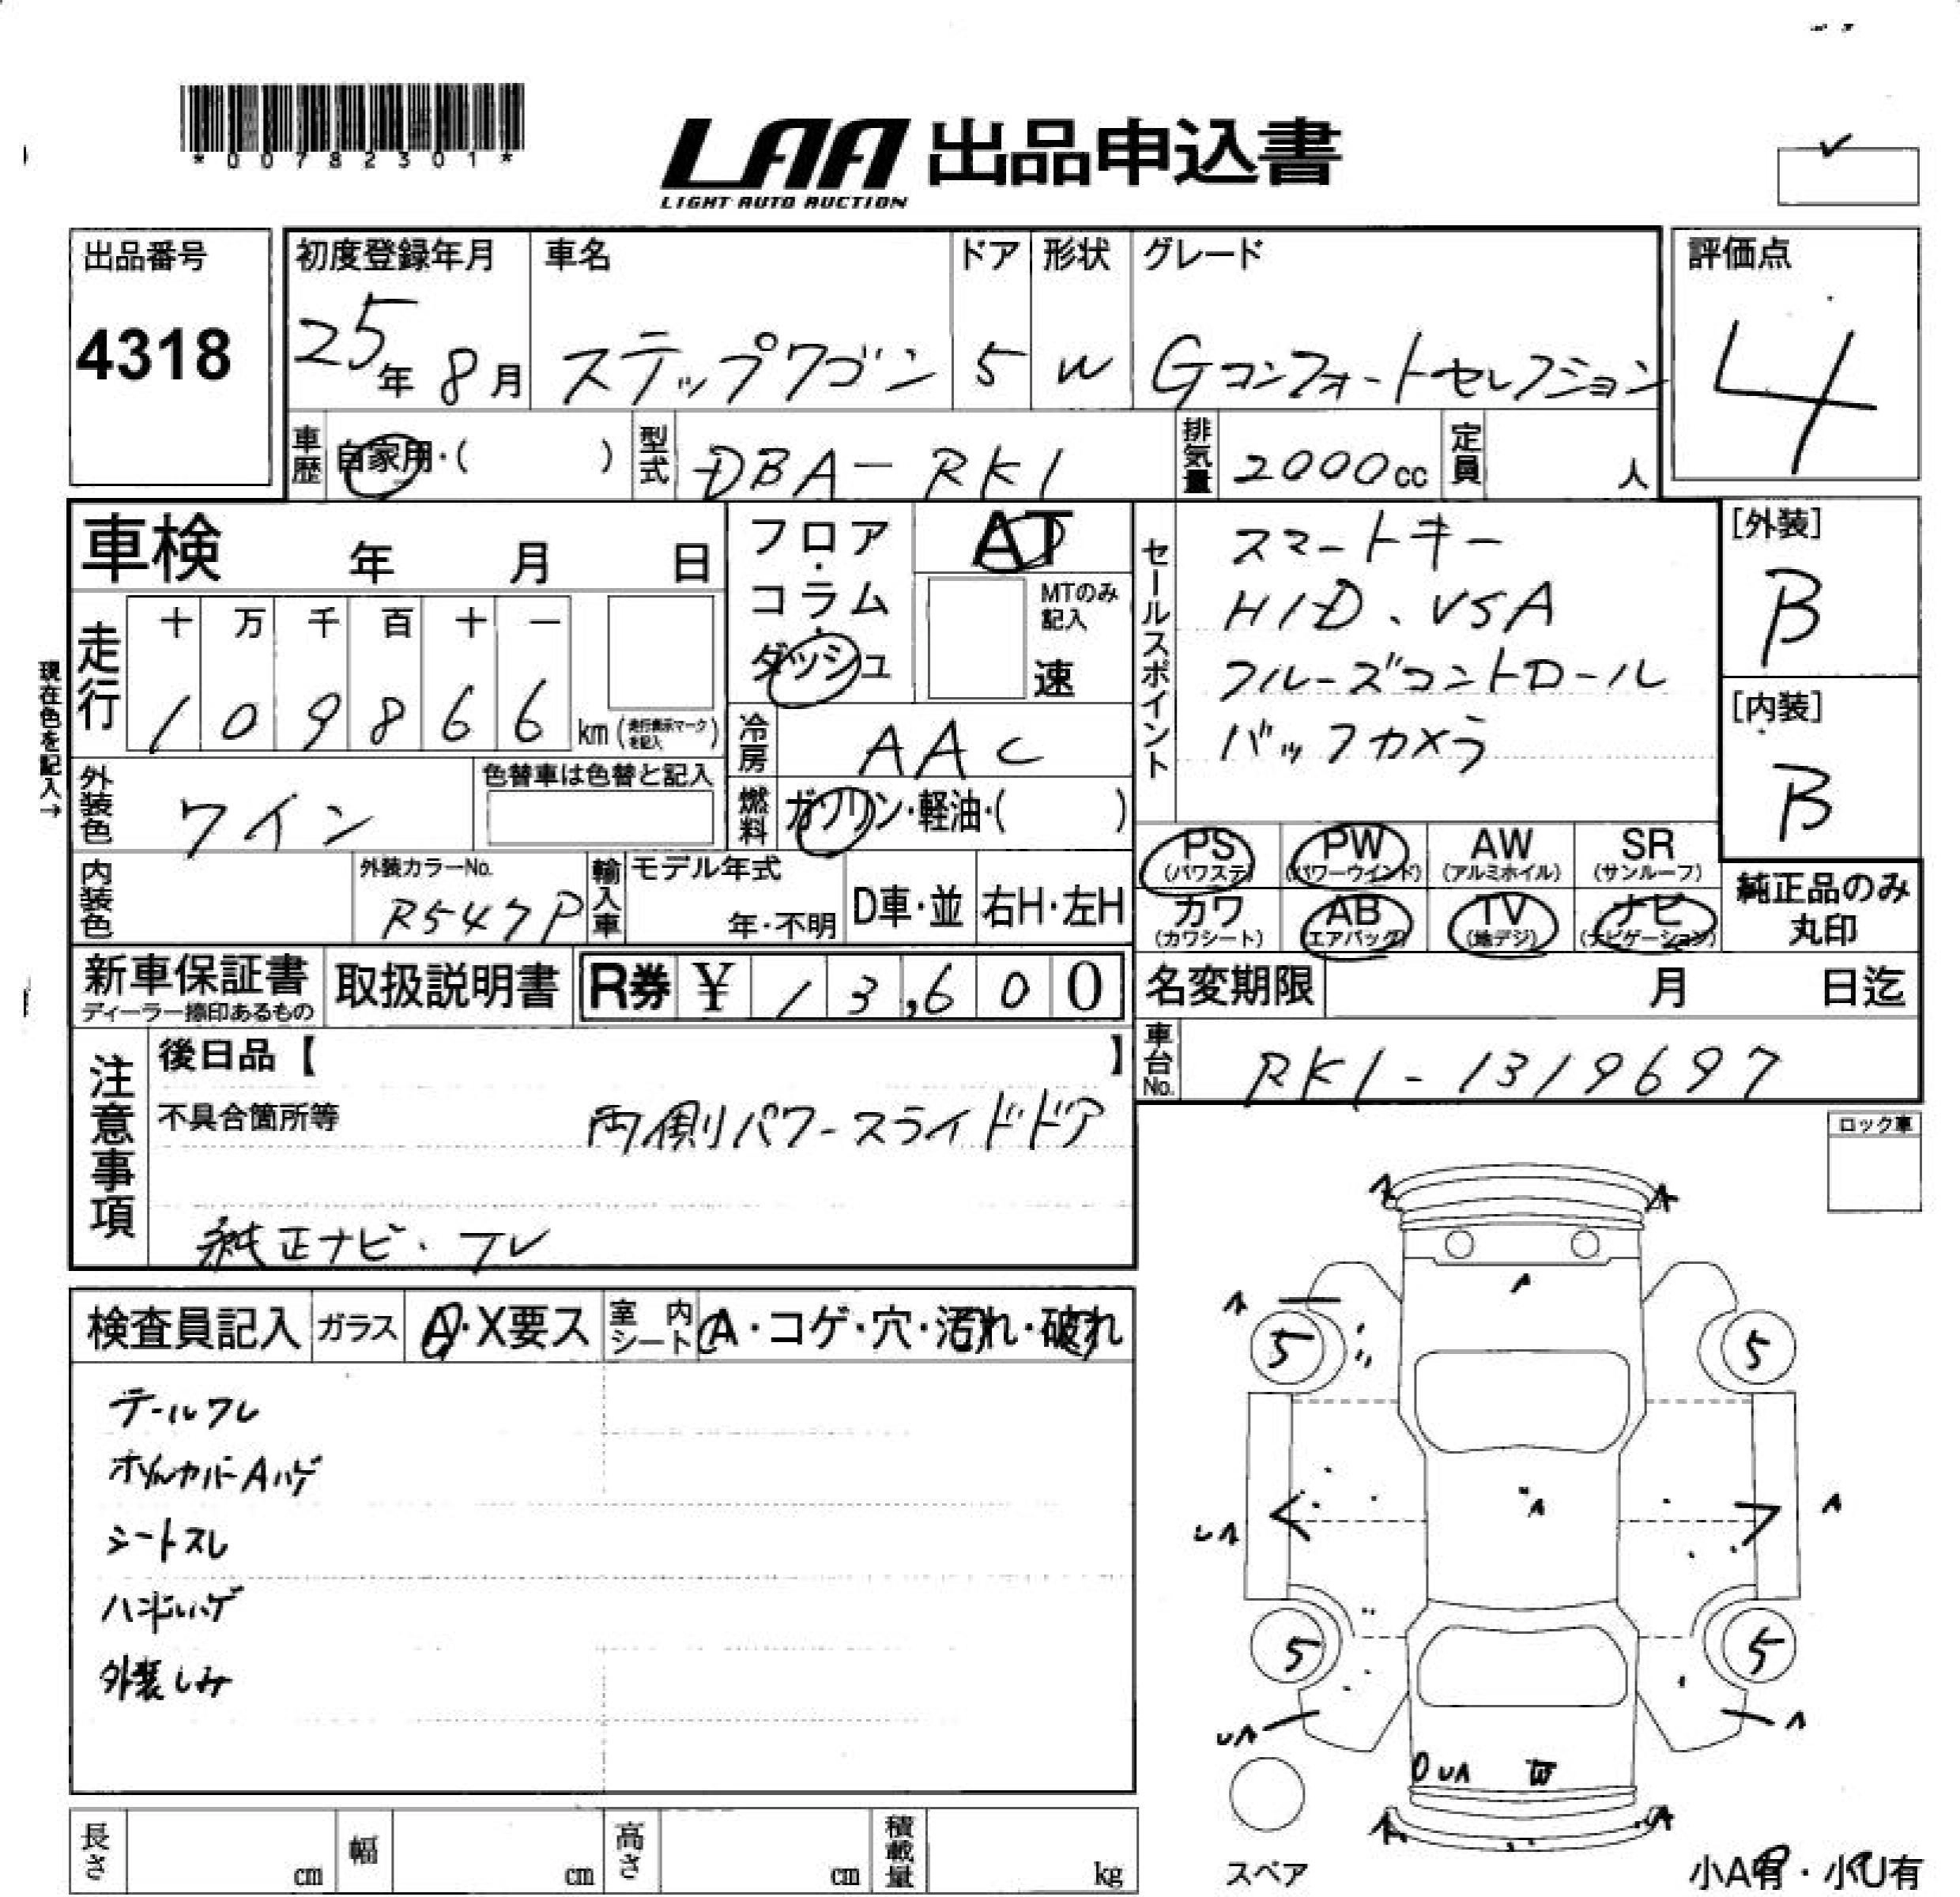 *00782301*
LAA 出品申込書
LIGHT AUTO AUCTION
出品番号
4318
初度登録年月
25年 8月
車名
ステップワゴン
ドア
5
形状
W
グレード
Gコンフォートセレクション
評価点
4
車歴
自家用・( )
型式
DBA-RK1
排気量
2000cc
定員
人
車検 年 月 日
走行
十 万 千 百 十 一
1 0 9 8 6 6 km
(走行表示マークを記入)
現在色を記入→
外装色
ワイン
色替車は色替と記入
内装色
外装カラーNo.
R547P
輸入車
モデル年式
年・不明
D車・並
右H・左H
フロア・コラム・ダッシュ
AT
MTのみ記入
速
冷房
AAC
燃料
ガソリン・軽油・( )
セールスポイント
スマートキー
HID、VSA
クルーズコントロール
バックカメラ
[外装]
B
[内装]
B
PS
(パワステ)
PW
(パワーウインド)
AW
(アルミホイル)
SR
(サンルーフ)
カワ
(カワシート)
AB
(エアバック)
TV
(地デジ)
ナビ
(ナビゲーション)
純正品のみ
丸印
新車保証書
ディーラー捺印あるもの
取扱説明書
R券 ¥ 13,600
名変期限 月 日迄
車台No.
RK1-1319697
注意事項
後日品【 】
不具合箇所等
両側パワースライドドア
純正ナビ・TV
ロック車
検査員記入
ガラス
A・X要ス
室内シート
A・コゲ・穴・汚れ・破れ
テールワレ
ホイルカバーAハゲ
シートスレ
ハンドルハゲ
外装しみ
A A
A
A
5 5
A
UA A
5 5
UA A
UA W
A A
スペア
小A有・小U有
長さ cm
幅 cm
高さ cm
積載量 kg